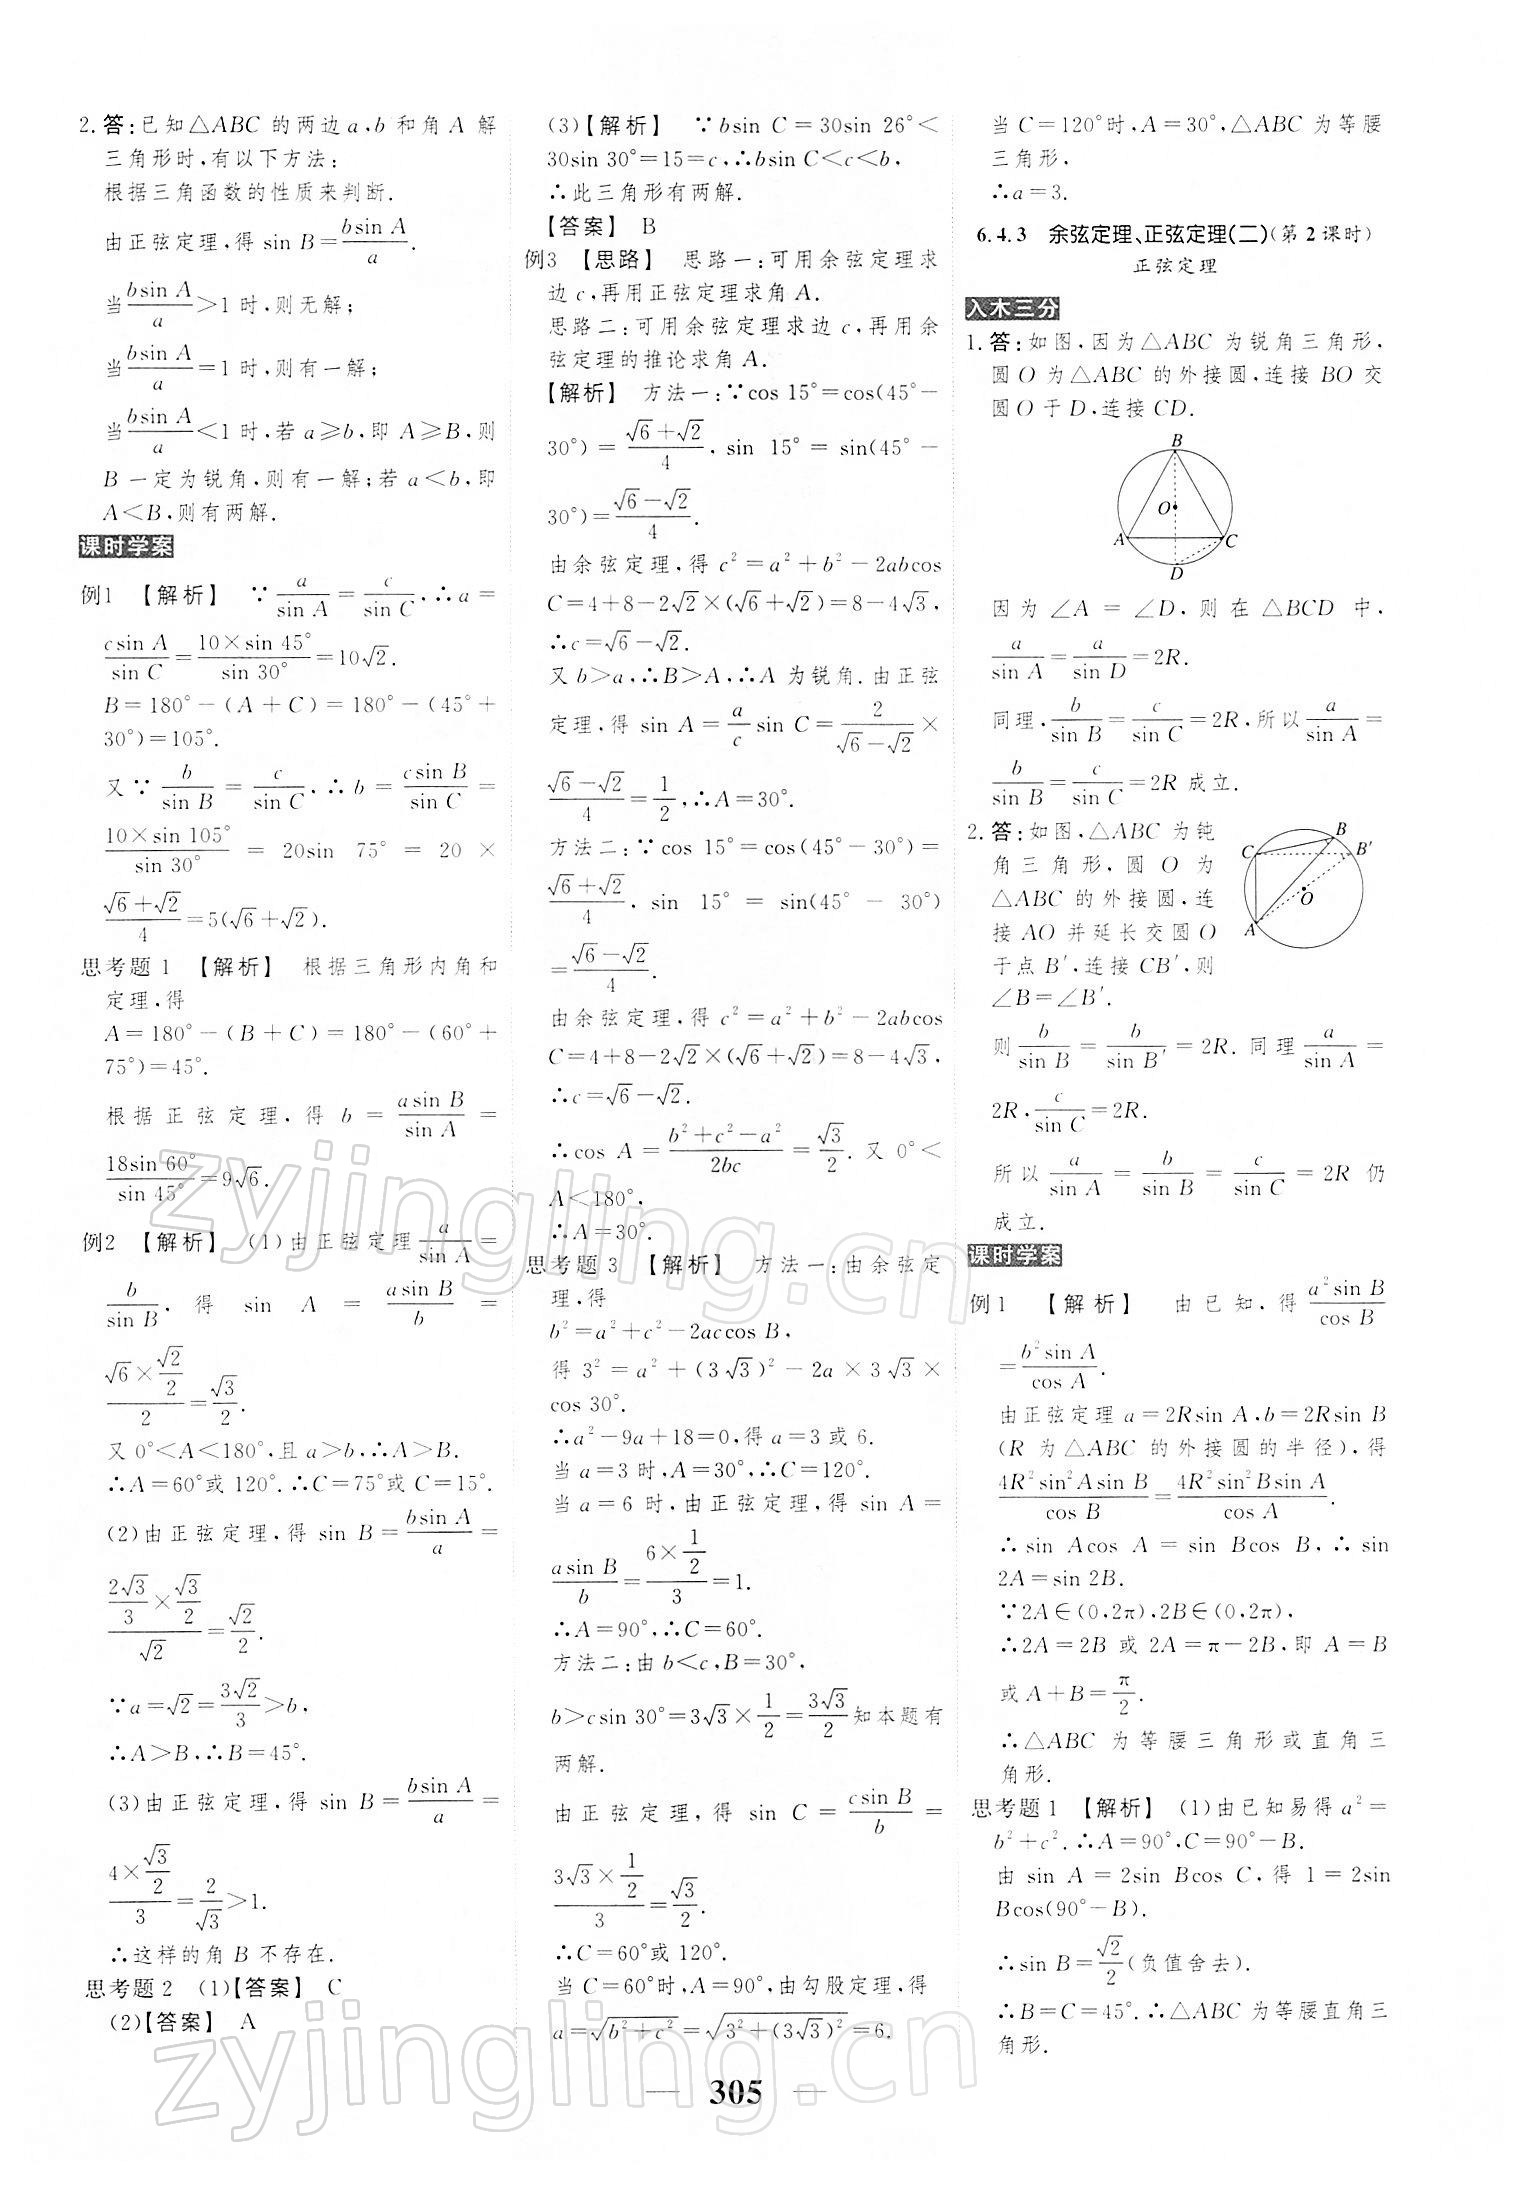 2. 答:已知△ABC 的两边 a,b 和角 A 解
三角形时,有以下方法:
根据三角函数的性质来判断.
由正弦定理,得 sin B=\frac{bsin A}{a}.
当\frac{bsin A}{a}>1 时,则无解;
当\frac{bsin A}{a}=1 时,则有一解;
当\frac{bsin A}{a}<1 时,若 a≥b,即 A≥B,则
B 一定为锐角,则有一解;若 a<b,即
A<B,则有两解.
课时学案
例1 【解析】 ∵\frac{a}{sin A}=\frac{c}{sin C},∴a=
\frac{csin A}{sin C}=\frac{10×sin 45°}{sin 30°}=10√2.
B=180°-(A+C)=180°-(45°+
30°)=105°.
又∵\frac{b}{sin B}=\frac{c}{sin C},∴b=\frac{csin B}{sin C}=
\frac{10×sin 105°}{sin 30°}=20sin 75°=20×
\frac{√6+√2}{4}=5(√6+√2).
思考题 1 【解析】 根据三角形内角和
定理,得
A=180°-(B+C)=180°-(60°+
75°)=45°.
根据正弦定理,得 b=\frac{asin B}{sin A}=
\frac{18sin 60°}{sin 45°}=9√6.
例2 【解析】 (1)由正弦定理\frac{a}{sin A}=
\frac{b}{sin B},得 sin A=\frac{asin B}{b}=
\frac{√6×\frac{√2}{2}}{2}=\frac{√3}{2}.
又 0°<A<180°,且 a>b,∴A>B.
∴A=60°或 120°.∴C=75°或 C=15°.
(2)由正弦定理,得 sin B=\frac{bsin A}{a}=
\frac{\frac{2√3}{3}×\frac{√3}{2}}{√2}=\frac{√2}{2}.
∵a=√2=\frac{3√2}{3}>b,
∴A>B,∴B=45°.
(3)由正弦定理,得 sin B=\frac{bsin A}{a}=
\frac{4×\frac{√3}{2}}{3}=\frac{2}{√3}>1.
∴这样的角 B 不存在.
思考题 2 (1)【答案】 C
(2)【答案】 A
(3)【解析】 ∵bsin C=30sin 26°<
30sin 30°=15=c,∴bsin C<c<b,
∴此三角形有两解.
【答案】 B
例3 【思路】 思路一:可用余弦定理求
边 c,再用正弦定理求角 A.
思路二:可用余弦定理求边 c,再用余
弦定理的推论求角 A.
【解析】 方法一:∵cos 15°=cos(45°-
30°)=\frac{√6+√2}{4},sin 15°=sin(45°-
30°)=\frac{√6-√2}{4}.
由余弦定理,得 c²=a²+b²-2abcos
C=4+8-2√2×(√6+√2)=8-4√3,
∴c=√6-√2.
又 b>a,∴B>A,∴A 为锐角.由正弦
定理,得 sin A=\frac{a}{c}sin C=\frac{2}{√6-√2}×
\frac{√6-√2}{4}=\frac{1}{2},∴A=30°.
方法二:∵cos 15°=cos(45°-30°)=
\frac{√6+√2}{4},sin 15°=sin(45°-30°)
=\frac{√6-√2}{4}.
由余弦定理,得 c²=a²+b²-2abcos
C=4+8-2√2×(√6+√2)=8-4√3,
∴c=√6-√2.
∴cos A=\frac{b²+c²-a²}{2bc}=\frac{√3}{2}.又 0°<
A<180°,
∴A=30°.
思考题 3 【解析】 方法一:由余弦定
理,得
b²=a²+c²-2accos B,
得 3²=a²+(3√3)²-2a×3√3×
cos 30°.
∴a²-9a+18=0,得 a=3 或 6.
当 a=3 时,A=30°,∴C=120°.
当 a=6 时,由正弦定理,得 sin A=
\frac{asin B}{b}=\frac{6×\frac{1}{2}}{3}=1.
∴A=90°,∴C=60°.
方法二:由 b<c,B=30°,
b>csin 30°=3√3×\frac{1}{2}=\frac{3√3}{2}知本题有
两解.
由正弦定理,得 sin C=\frac{csin B}{b}=
\frac{3√3×\frac{1}{2}}{3}=\frac{√3}{2}.
∴C=60°或 120°.
当 C=60°时,A=90°,由勾股定理,得
a=√(b²+c²)=√(3²+(3√3)²)=6.
当 C=120°时,A=30°,△ABC 为等腰
三角形,
∴a=3.
6.4.3 余弦定理、正弦定理(二)(第 2 课时)
正弦定理
入木三分
1. 答:如图,因为△ABC 为锐角三角形,
圆 O 为△ABC 的外接圆,连接 BO 交
圆 O 于 D,连接 CD.
B
O
A C
D
因为 ∠A=∠D,则在△BCD 中,
\frac{a}{sin A}=\frac{a}{sin D}=2R.
同理,\frac{b}{sin B}=\frac{c}{sin C}=2R,所以\frac{a}{sin A}=
\frac{b}{sin B}=\frac{c}{sin C}=2R 成立.
2. 答:如图,△ABC 为钝
角三角形,圆 O 为
△ABC 的外接圆,连
接 AO 并延长交圆 O
于点 B′,连接 CB′,则
∠B=∠B′.
B
C B′
O
A
则\frac{b}{sin B}=\frac{b}{sin B′}=2R.同理\frac{a}{sin A}=
2R,\frac{c}{sin C}=2R.
所以\frac{a}{sin A}=\frac{b}{sin B}=\frac{c}{sin C}=2R 仍
成立.
课时学案
例1 【解析】 由已知,得\frac{a²sin B}{cos B}
=\frac{b²sin A}{cos A}.
由正弦定理 a=2Rsin A,b=2Rsin B
(R 为△ABC 的外接圆的半径),得
\frac{4R²sin²Asin B}{cos B}=\frac{4R²sin²Bsin A}{cos A}.
∴sin Acos A=sin Bcos B,∴sin
2A=sin 2B.
∵2A∈(0,2π),2B∈(0,2π),
∴2A=2B 或 2A=π-2B,即 A=B
或 A+B=\frac{π}{2}.
∴△ABC 为等腰三角形或直角三
角形.
思考题 1 【解析】 (1)由已知易得 a²=
b²+c².∴A=90°,C=90°-B.
由 sin A=2sin Bcos C,得 1=2sin
Bcos(90°-B).
∴sin B=\frac{√2}{2}(负值舍去).
∴B=C=45°.∴△ABC 为等腰直角三
角形.
— 305 —
zyjingling.cn
zyjingling.cn